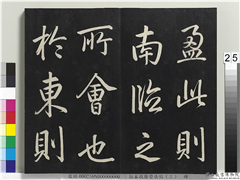 盈此則
南臨之
所會也
於東則
25